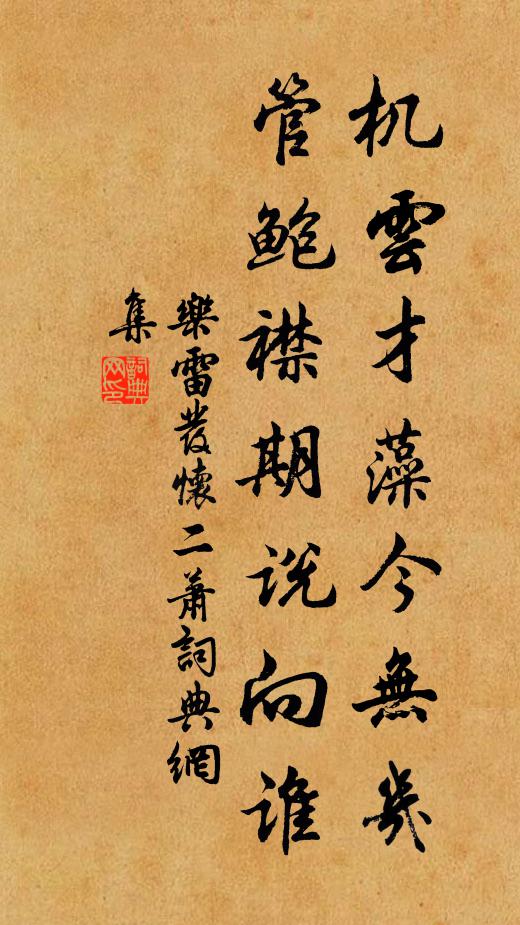 机雲才藻今無幾
管鲍襟期説向誰
樂雷發懷二蕭詞典網
集
詞典
网印